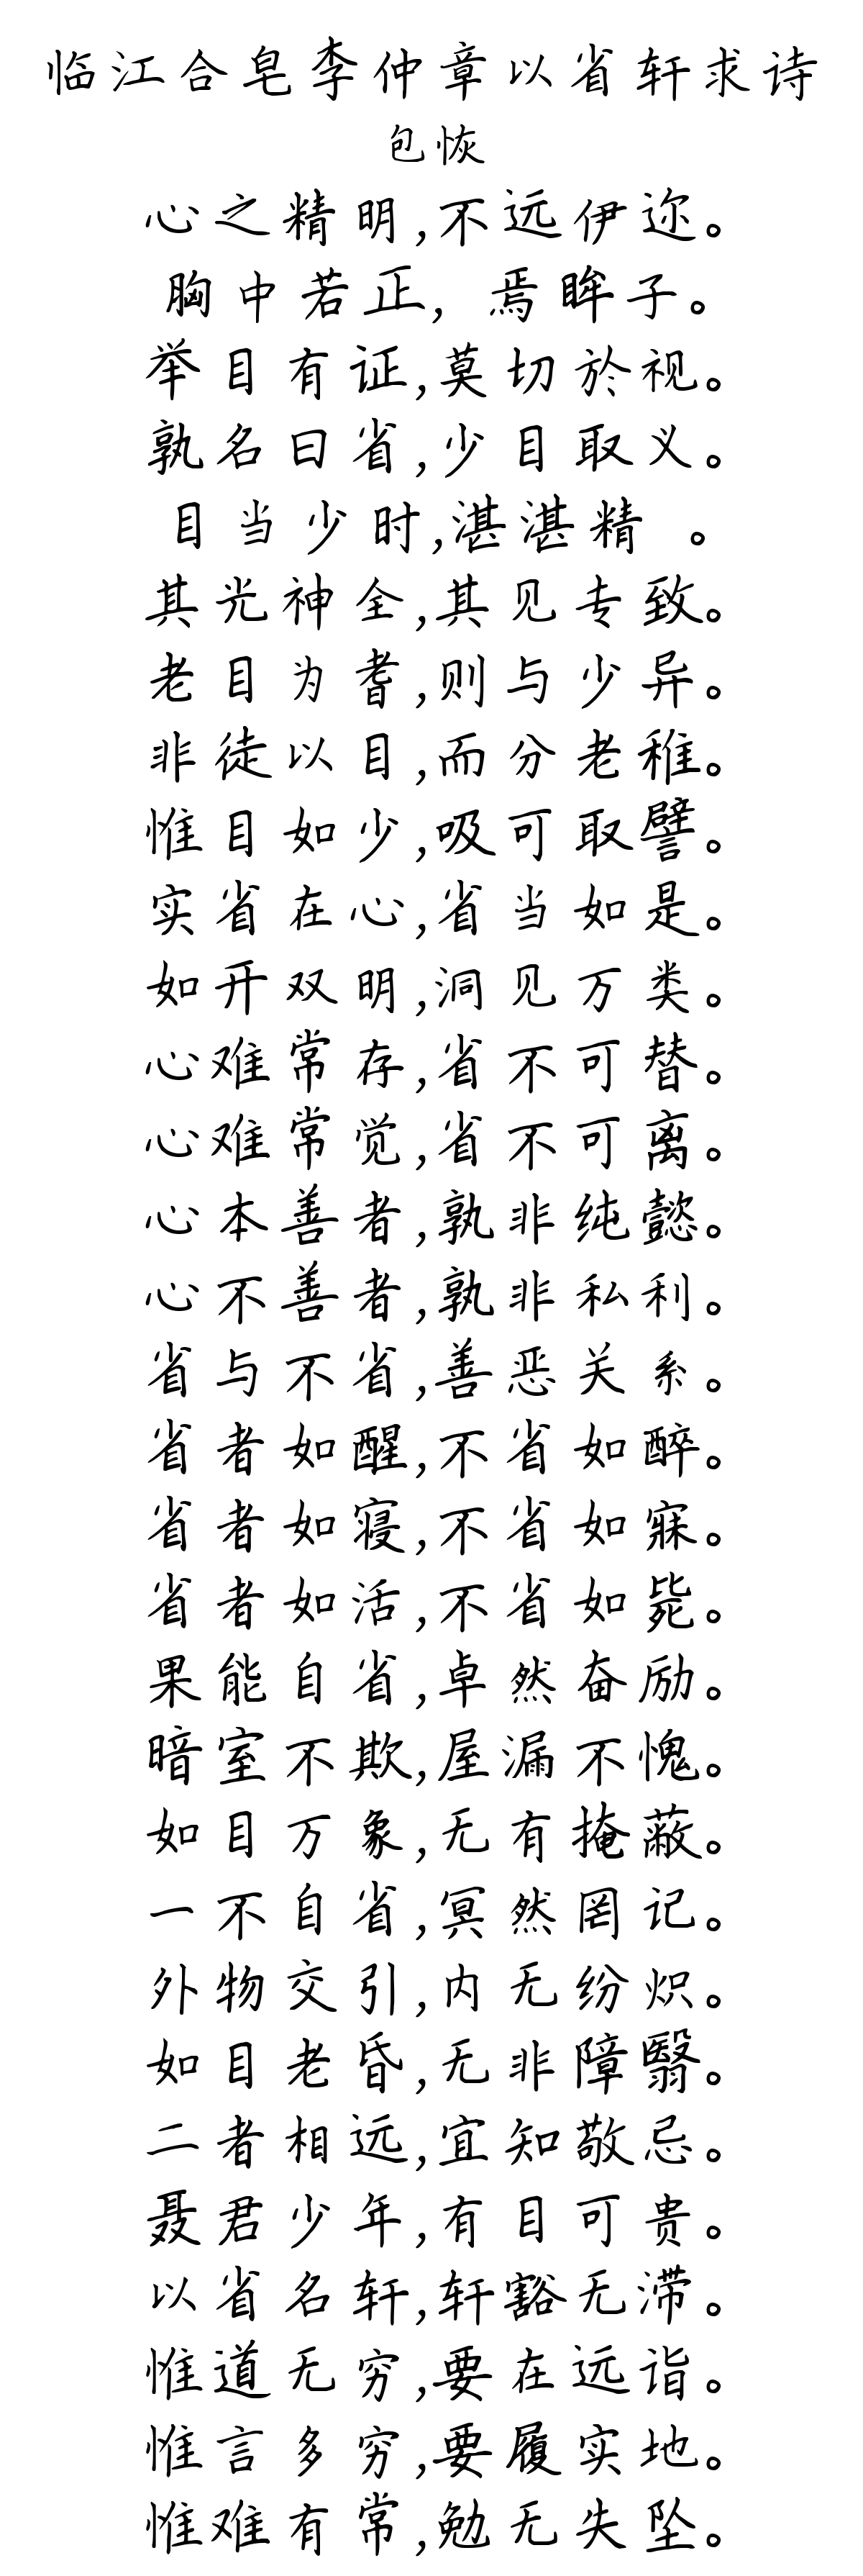 临江合皂李仲章以省轩求诗
包恢
心之精明,不远伊迩。
胸中若正,焉眸子。
举目有证,莫切於视。
孰名曰省,少目取义。
目当少时,湛湛精 。
其光神全,其见专致。
老目为耆,则与少异。
非徒以目,而分老稚。
惟目如少,吸可取譬。
实省在心,省当如是。
如开双明,洞见万类。
心难常存,省不可替。
心难常觉,省不可离。
心本善者,孰非纯懿。
心不善者,孰非私利。
省与不省,善恶关系。
省者如醒,不省如醉。
省者如寝,不省如寐。
省者如活,不省如毙。
果能自省,卓然奋励。
暗室不欺,屋漏不愧。
如目万象,无有掩蔽。
一不自省,冥然罔记。
外物交引,内无纷炽。
如目老昏,无非障翳。
二者相远,宜知敬忌。
聂君少年,有目可贵。
以省名轩,轩豁无滞。
惟道无穷,要在远诣。
惟言多穷,要履实地。
惟难有常,勉无失坠。